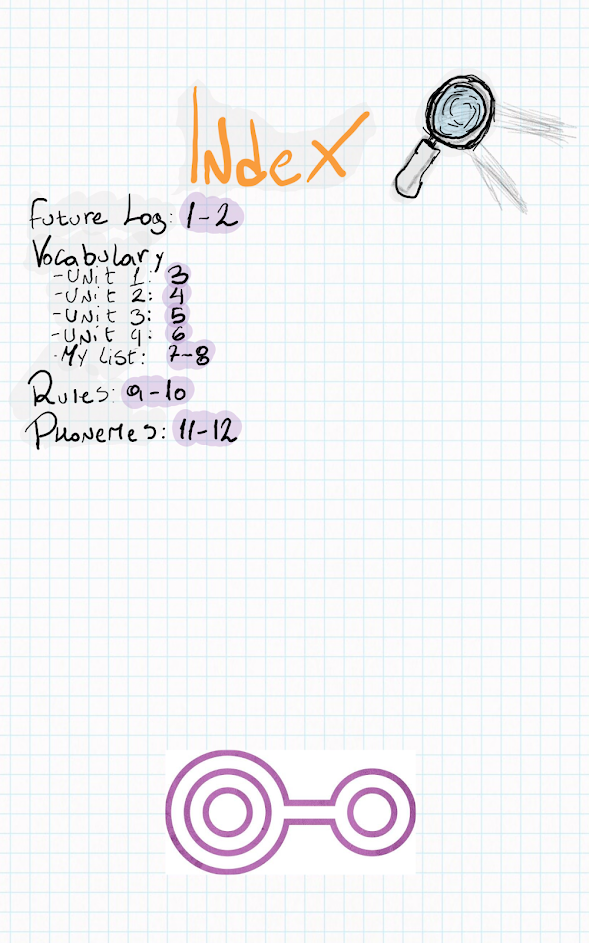 Index
Future Log: 1-2
Vocabulary
-Unit 1: 3
-Unit 2: 4
-Unit 3: 5
-Unit 4: 6
-My List: 7-8
Rules: 9-10
Phonemes: 11-12